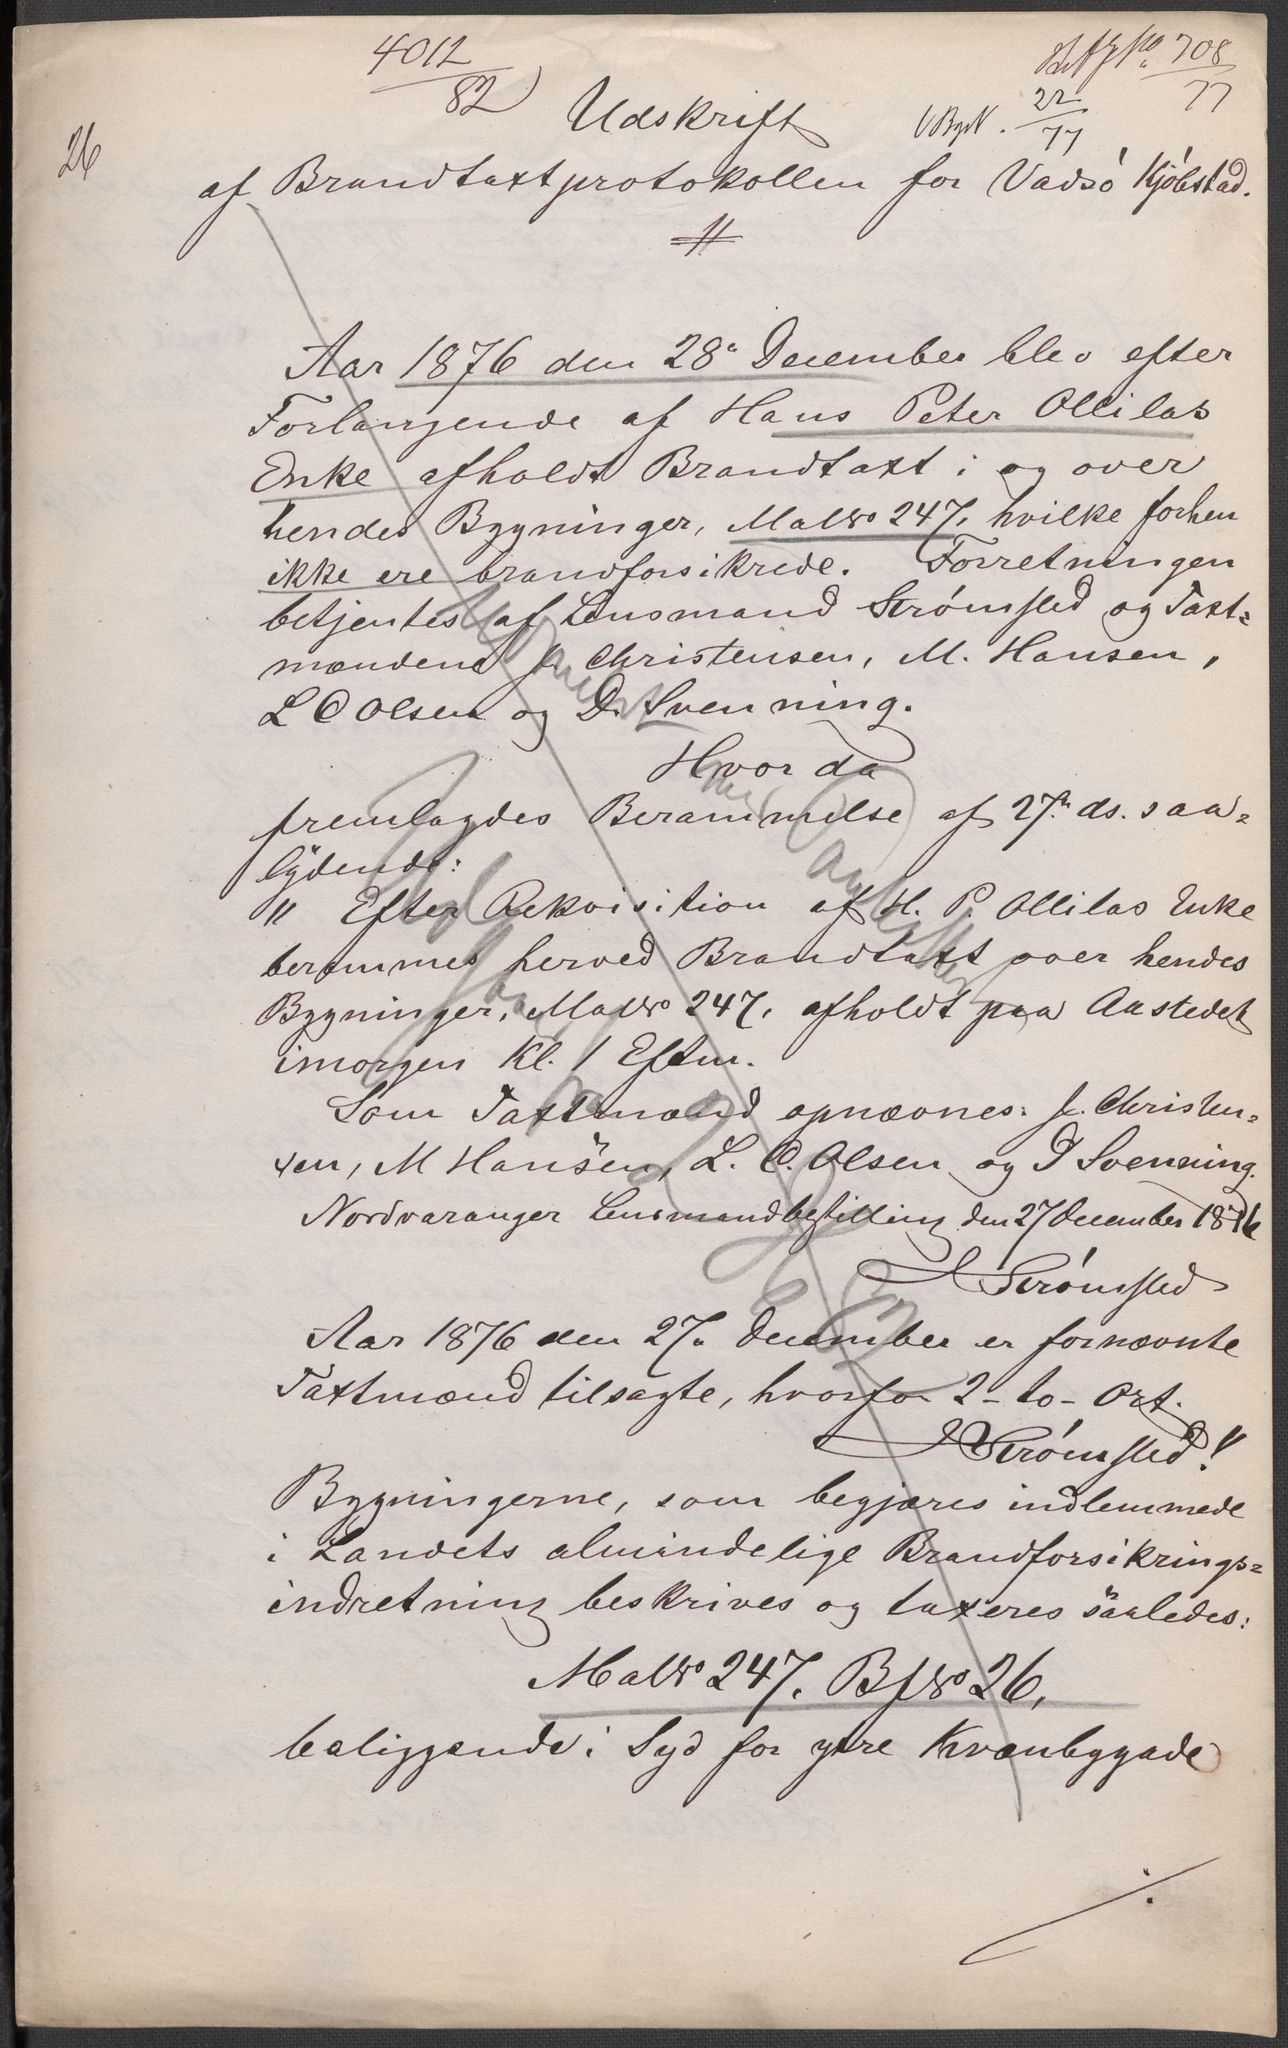 4012
82
708
77
22
77
26
Udskrift
af Brandtaxtprotokollen for Vadsö Kjöbstad.
Aar 1876 den 28' December blev efter
Forlangende af Hans Peter Ollilas
Enke afholdt Brandtaxt i og over
hendes Bygninger, MatNo 247, hvilke forhen
ikke ere brandforsikrede. Forretningen
betjentes af Lensmand Strømsted og Taxt=
mændene J. Christensen, M. Hansen,
L C Olsen og D. Svenning.
Hvor da
fremlagdes Berammelse af 27' ds. saa=
lydende:
" Efter Rekvisition af H. P. Ollilas Enke
berammes herved Brandtaxt over hendes
Bygninger, MatNo 247, afholdt paa Aastedet
imorgen Kl. 1 Eftm.
Som Taxtmænd opnævnes: J. Christen=
sen, M Hansen, L. C. Olsen og D Svenning.
Nordvaranger Lensmandbestilling den 27 December 1876
Strømsted
Aar 1876 den 27' December er fornævnte
Taxtmænd tilsagte, hvorfor 2 - to - Ort.
Strømsted."
Bygningerne, som begjæres indlemmede
i Landets almindelige Brandforsikrings=
indretning beskrives og taxeres saaledes:
MatNo 247. BfNo 26,
beliggende i Syd for ytre Kvænbygade